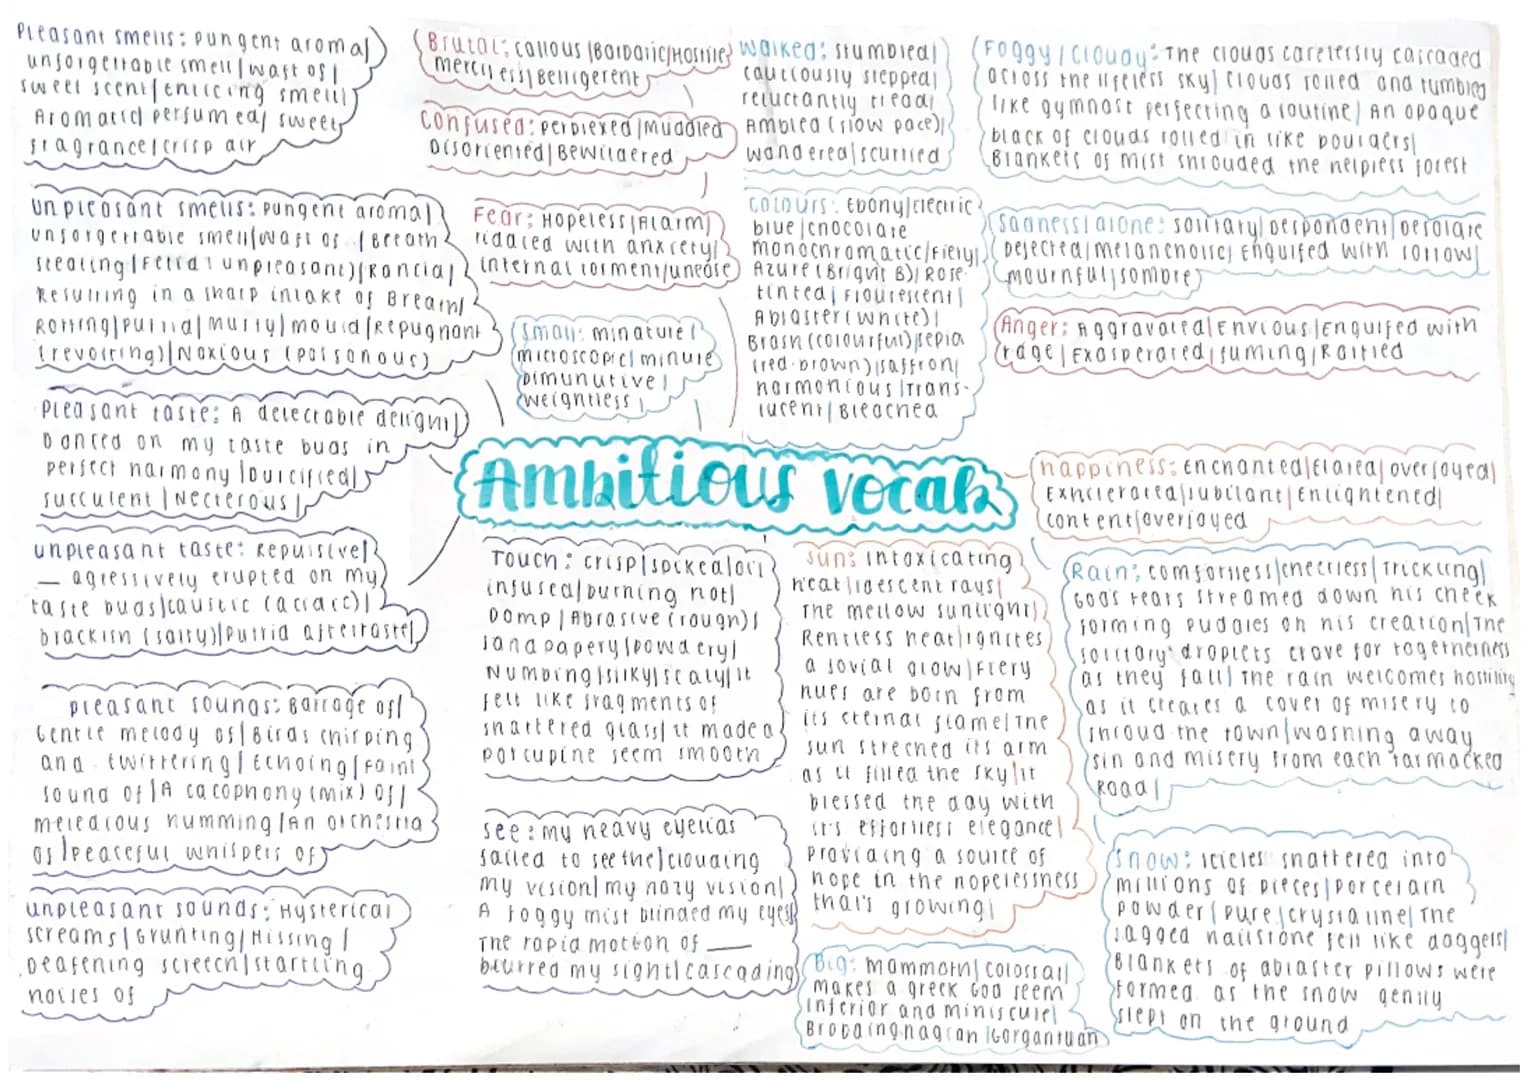 Pleasant smells: Pungent aroma/
unforgettable smell/waft of/
sweet scent/enticing smell/
Aromatic/perfumed/sweet
fragrance/crisp air
Unpleasant smells: Pungent aroma/
unforgettable smell/waft of../Breath
stealing/Fetid (unpleasant)/Rancid/
Resulting in a sharp intake of Breath/
Rotting/putrid/musty/mould/Repugnant
(revolting)/Noxious (poisonous)
Pleasant taste: A delectable delight/
Danced on my taste buds in
perfect harmony/
succulent/Necterous/
unpleasant taste: Repulsive/
__ agressively erupted on my
taste buds/caustic (acidic)/
brackish (salty)/putrid aftertaste/
pleasant sounds: Barrage of/
Gentle melody of/Birds chirping
and twittering/Echoing/Faint
sound of/A cacophony (mix) of/
melodious humming/An orchestra
of/Peaceful whispers of
unpleasant sounds: Hysterical
screams/Grunting/Hissing/
Deafening screech/startling
noises of
Brutal: callous/Barbaric/Hostile/
merciless/Belligerent
Confused: perplexed/Muddled
Disoriented/Bewildered
Fear: Hopeless/Alarm/
riddled with anxiety/
internal torment/unease
Small: minature/
microscopic/minute
Dimunutive/
weightless
Walked: stumbled/
cautiously stepped/
reluctantly tread/
Ambled (slow pace)/
wandered/scurried
Colours: Ebony/Electric
blue/chocolate
monochromatic/Fiery/
Azure (Bright B)/Rose
tinted/Flourescent/
Ablaster (white)/
Brash (colourful)/sepia
(red-brown)/saffron/
harmonious/Trans-
lucent/Bleached
Foggy/Cloudy: The clouds carelessly cascaded
across the lifeless sky/clouds rolled and tumbled
like gymnast perfecting a routine/An opaque
black of clouds rolled in like boulders/
Blankets of mist shrouded the helpless forest
Sadness/alone: solitary/Despondent/Desolate
Dejected/melancholic/Engulfed with sorrow/
mournful/sombre
Anger: Aggravated/Envious/Engulfed with
rage/Exasperated/fuming/Rattled
Ambitious vocab
happiness: Enchanted/Elated/overjoyed/
Exhilerated/Jubilant/Enlightened/
content/overjoyed
Touch: Crisp/spiked/oil
infused/burning hot/
Damp/Abrasive (rough)/
sandpapery/powdery/
Numbing/silky/scaly/it
felt like fragments of
shattered glass/it made a
porcupine seem smooth
see: my heavy eyelids
failed to see the/clouding
my vision/my hazy vision/
A foggy mist blinded my eyes/
The rapid motion of __
blurred my sight/cascading
Sun: Intoxicating
heat/idescent rays/
The mellow sunlight/
Rentless heat/ignites
a jovial glow/Fiery
hues are born from
its eternal flame/The
sun streched its arm
as it filled the sky/it
blessed the day with
it's effortless elegance/
Providing a source of
hope in the hopelessness
that's growing/
Big: mammoth/colossal/
makes a greek God seem
inferior and miniscule/
Brobdingnagian/Gorgantuan
Rain: comfortless/cheerless/Trickling/
Gods tears streamed down his cheek
forming puddles on his creation/The
solitary droplets crave for togetherness
as they fall/The rain welcomes hostility
as it creates a cover of misery to
shroud the town/washing away
sin and misery from each tarmacked
Road/
Snow: Icicles shattered into
millions of pieces/porcelain
powder/pure/crystalline/The
jagged hailstone fell like daggers/
Blankets of ablaster pillows were
formed as the snow gently
slept on the ground